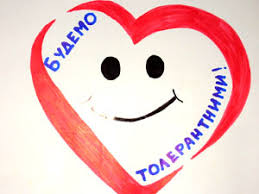 БУДЕМО
ТОЛЕРАНТНИМИ!